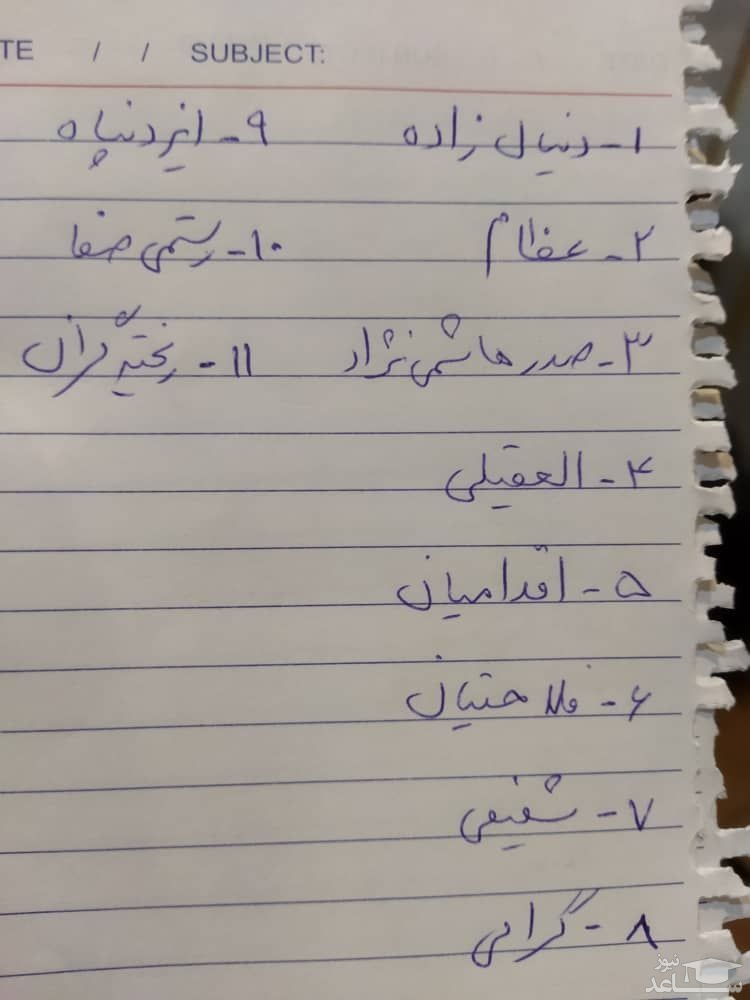 TE / / SUBJECT:
۱- دنیال زاده
۲- عظام
۳- صدرهاشمی نژاد
۴- العقیلی
۵- اقدامیان
۶- فلاحتیان
۷- شفیعی
۸- گرامی
۹- ایزدپناه
۱۰- رستمی صفا
۱۱- ریخته گران
ساعد نیوز